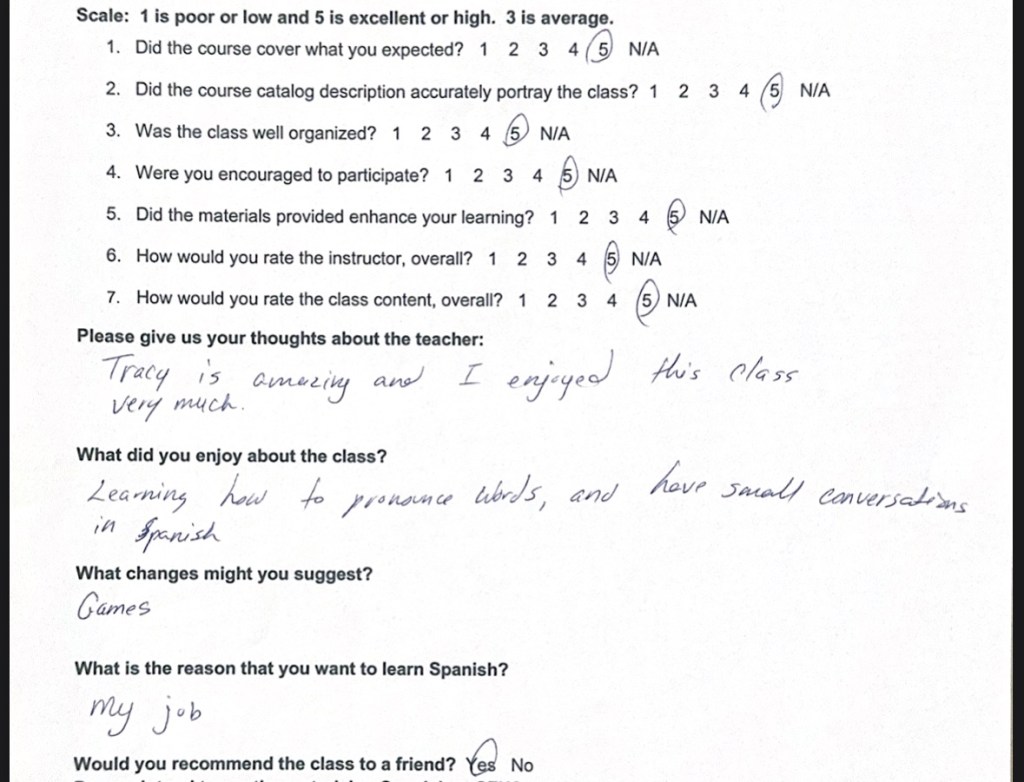 Scale: 1 is poor or low and 5 is excellent or high. 3 is average.
1. Did the course cover what you expected? 1 2 3 4 5 N/A
2. Did the course catalog description accurately portray the class? 1 2 3 4 5 N/A
3. Was the class well organized? 1 2 3 4 5 N/A
4. Were you encouraged to participate? 1 2 3 4 5 N/A
5. Did the materials provided enhance your learning? 1 2 3 4 5 N/A
6. How would you rate the instructor, overall? 1 2 3 4 5 N/A
7. How would you rate the class content, overall? 1 2 3 4 5 N/A
Please give us your thoughts about the teacher:
Tracy is amazing and I enjoyed this class
very much.
What did you enjoy about the class?
Learning how to pronounce words, and have small conversations
in Spanish
What changes might you suggest?
Games
What is the reason that you want to learn Spanish?
my job
Would you recommend the class to a friend? Yes No